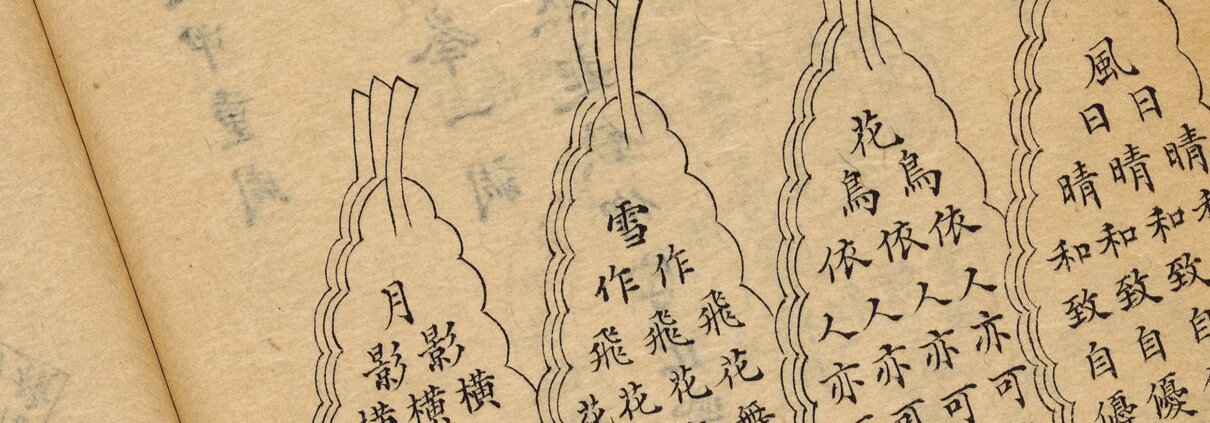 風
日日
晴晴晴
和和和和
致致致
自自自
優優
花
鳥鳥
依依依
人人人人
亦亦亦亦
可可可
雪
作作
飛飛飛
花花花花
月
影影
橫橫橫